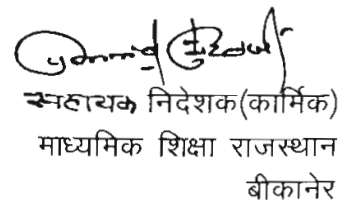 सहायक निदेशक(कार्मिक)
माध्यमिक शिक्षा राजस्थान
बीकानेर